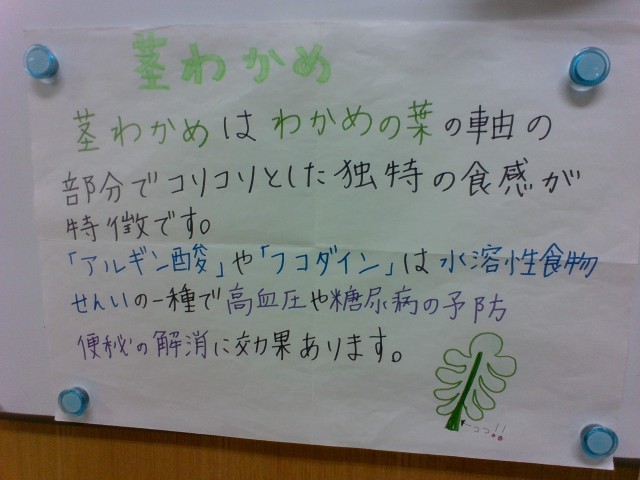 茎わかめ
茎わかめはわかめの葉の軸の
部分でコリコリとした独特の食感が
特徴です。
「アルギン酸」や「フコダイン」は水溶性食物
せんいの一種で高血圧や糖尿病の予防
便秘の解消に効果あります。
←ココ!!